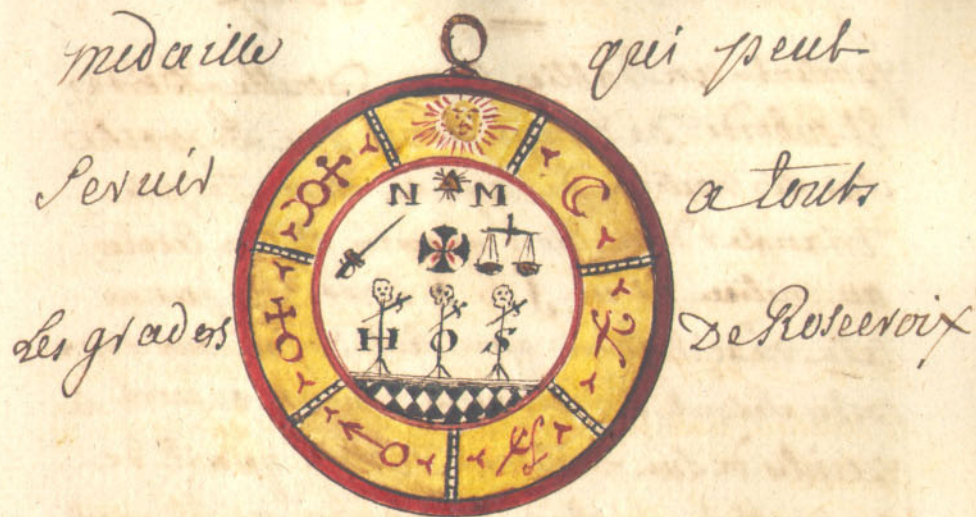 medaille qui peut
N M
servir a touts
H O S
Les grades De Rosecroix